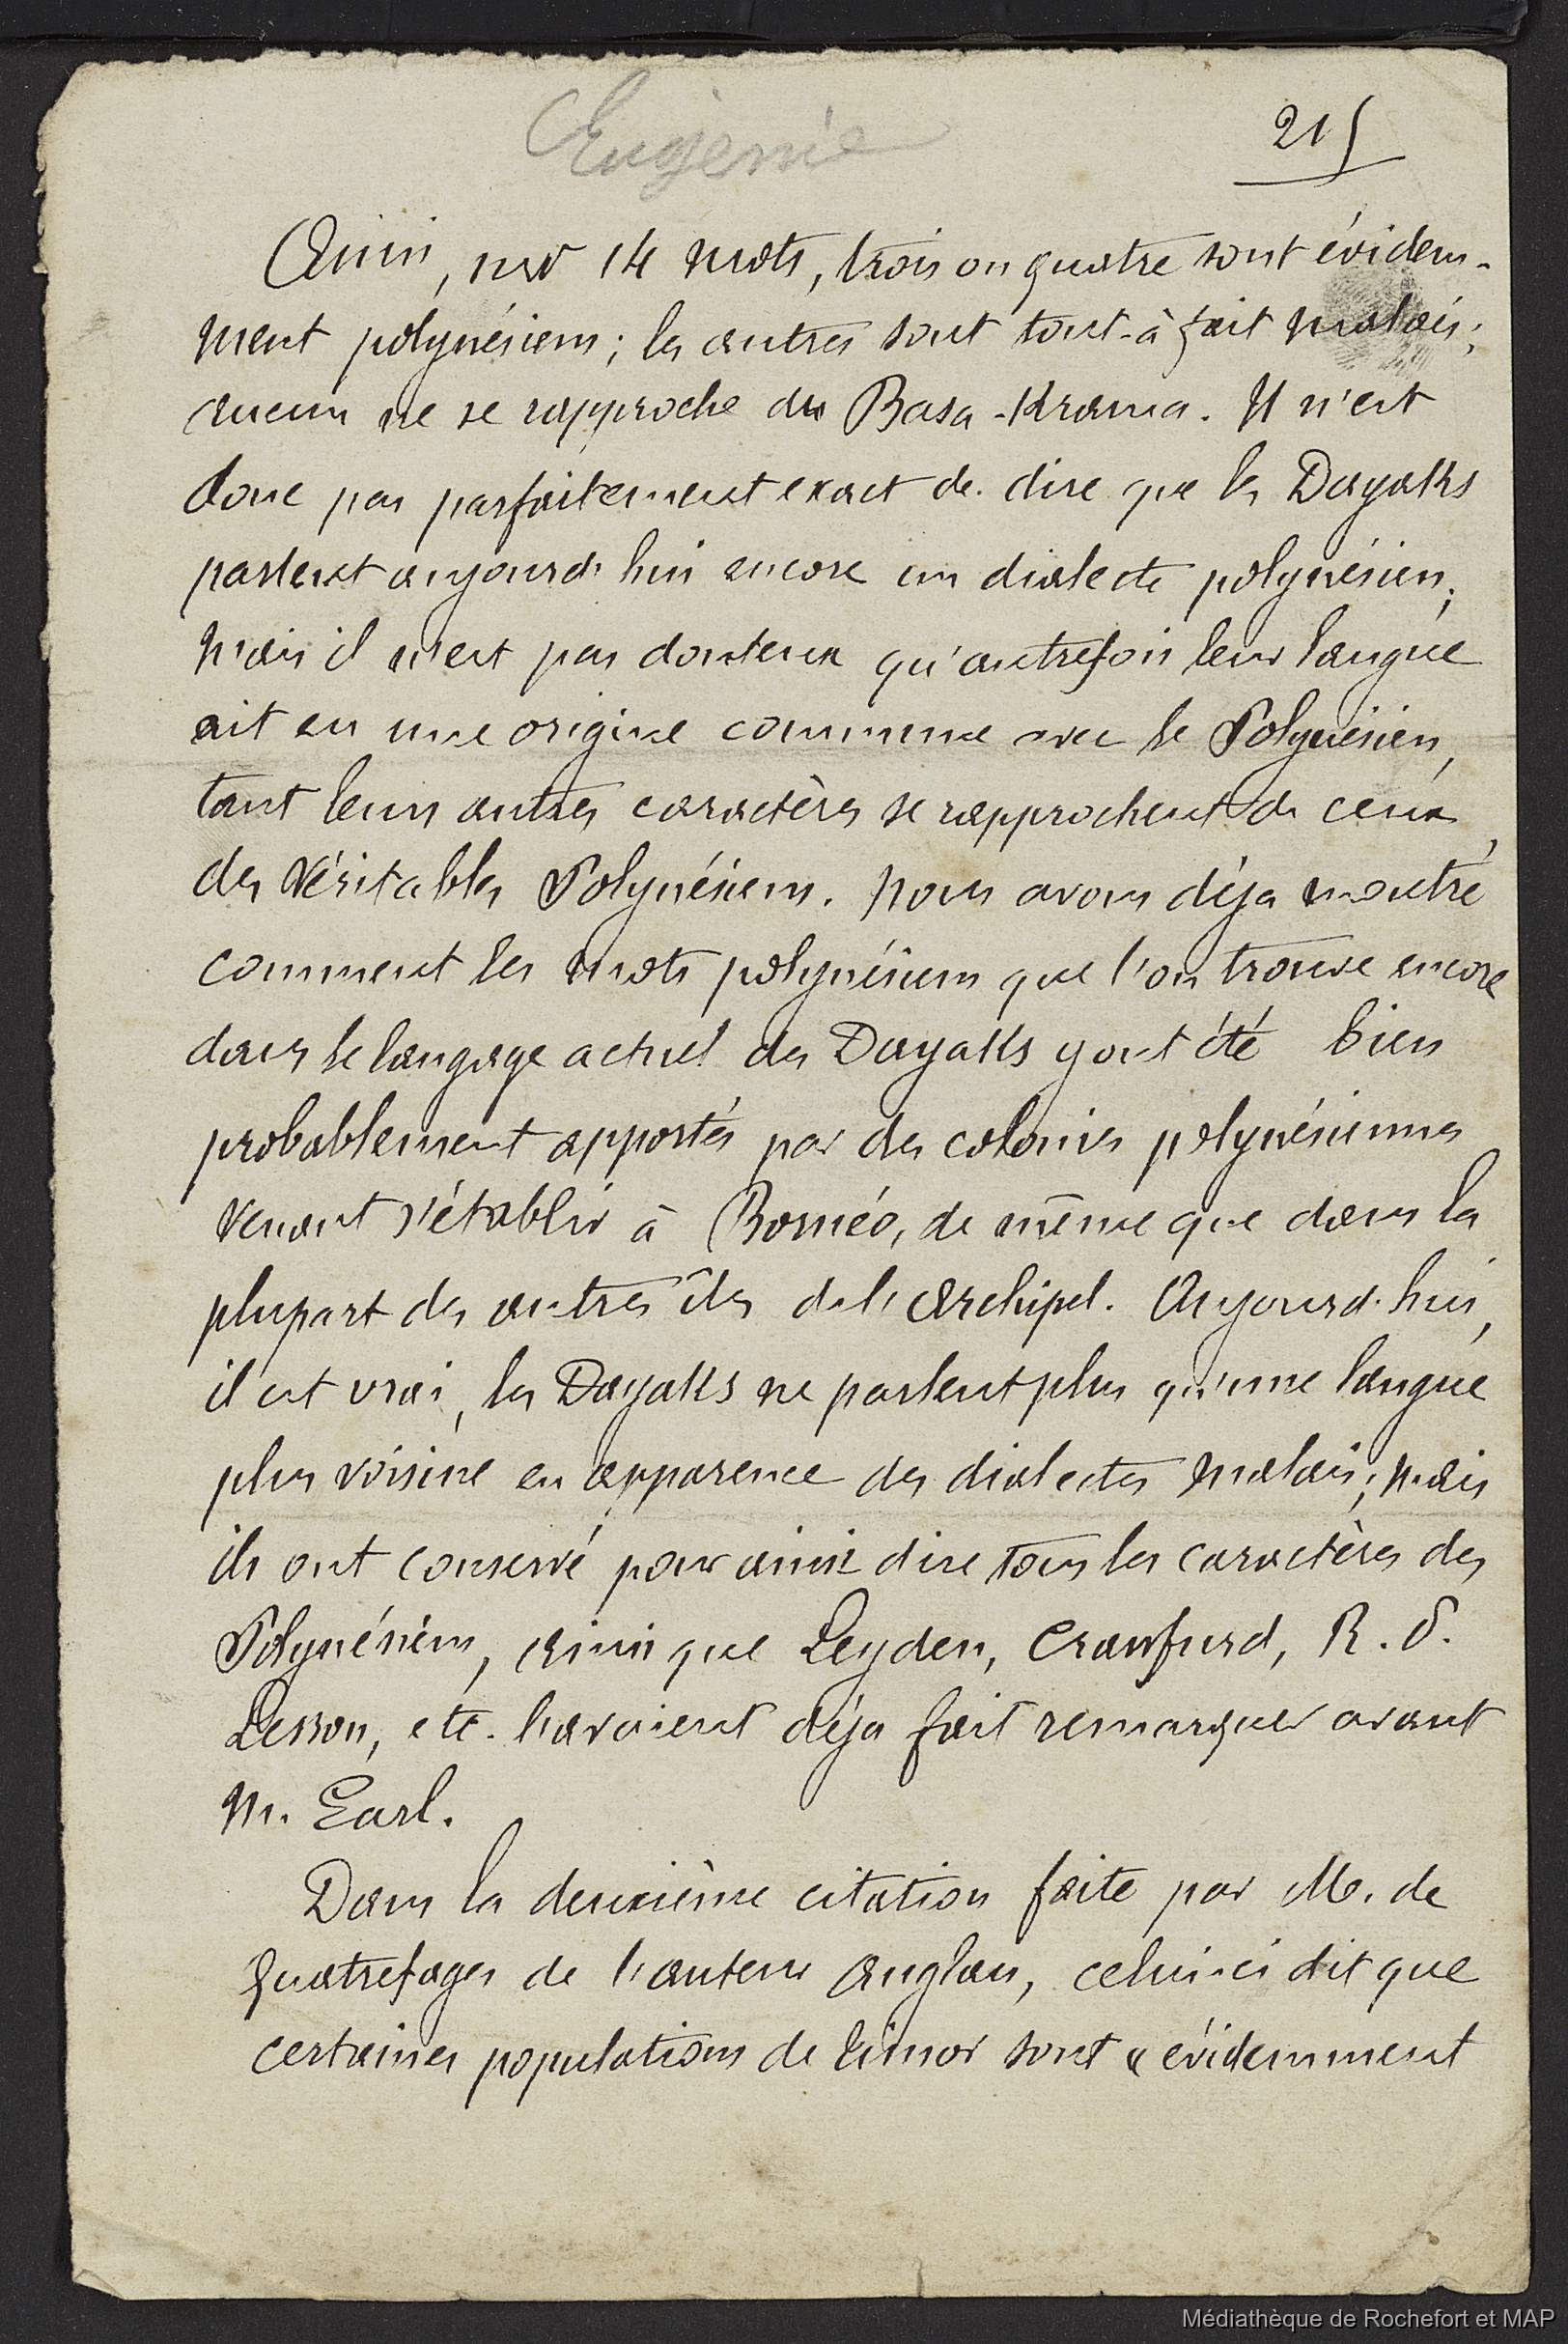 Eugénie
215
Ainsi, sur 14 mots, trois ou quatre sont évidem-
ment polynésiens; les autres sont tout-à fait malais;
aucun ne se rapproche du Basa-Krama. Il n'est
donc pas parfaitement exact de dire que les Dayaks
parlent aujourd'hui encore un dialecte polynésien;
mais il n'est pas douteux qu'autrefois leur langue
ait eu une origine commune avec le Polynésien,
tant leurs autres caractères se rapprochent de ceux
des véritables Polynésiens. Nous avons déja montré
comment les mots polynésiens que l'on trouve encore
dans le langage actuel des Dayaks y ont été bien
probablement apportés par des colonies polynésiennes
venant s'établir à Bornéo, de même que dans la
plupart des autres îles de l'Archipel. Aujourd'hui,
il est vrai, les Dayaks ne parlent plus qu'une langue
plus voisine en apparence des dialectes malais; mais
ils ont conservé pour ainsi dire tous les caractères des
Polynésiens, ainsi que Leyden, Crawfurd, R. P.
Lesson, etc. l'avaient déja fait remarquer avant
M. Earl.
Dans la deuxième citation faite par M. de
Quatrefages de l'auteur Anglais, celui-ci dit que
certaines populations de Timor sont « évidemment
Médiathèque de Rochefort et MAP